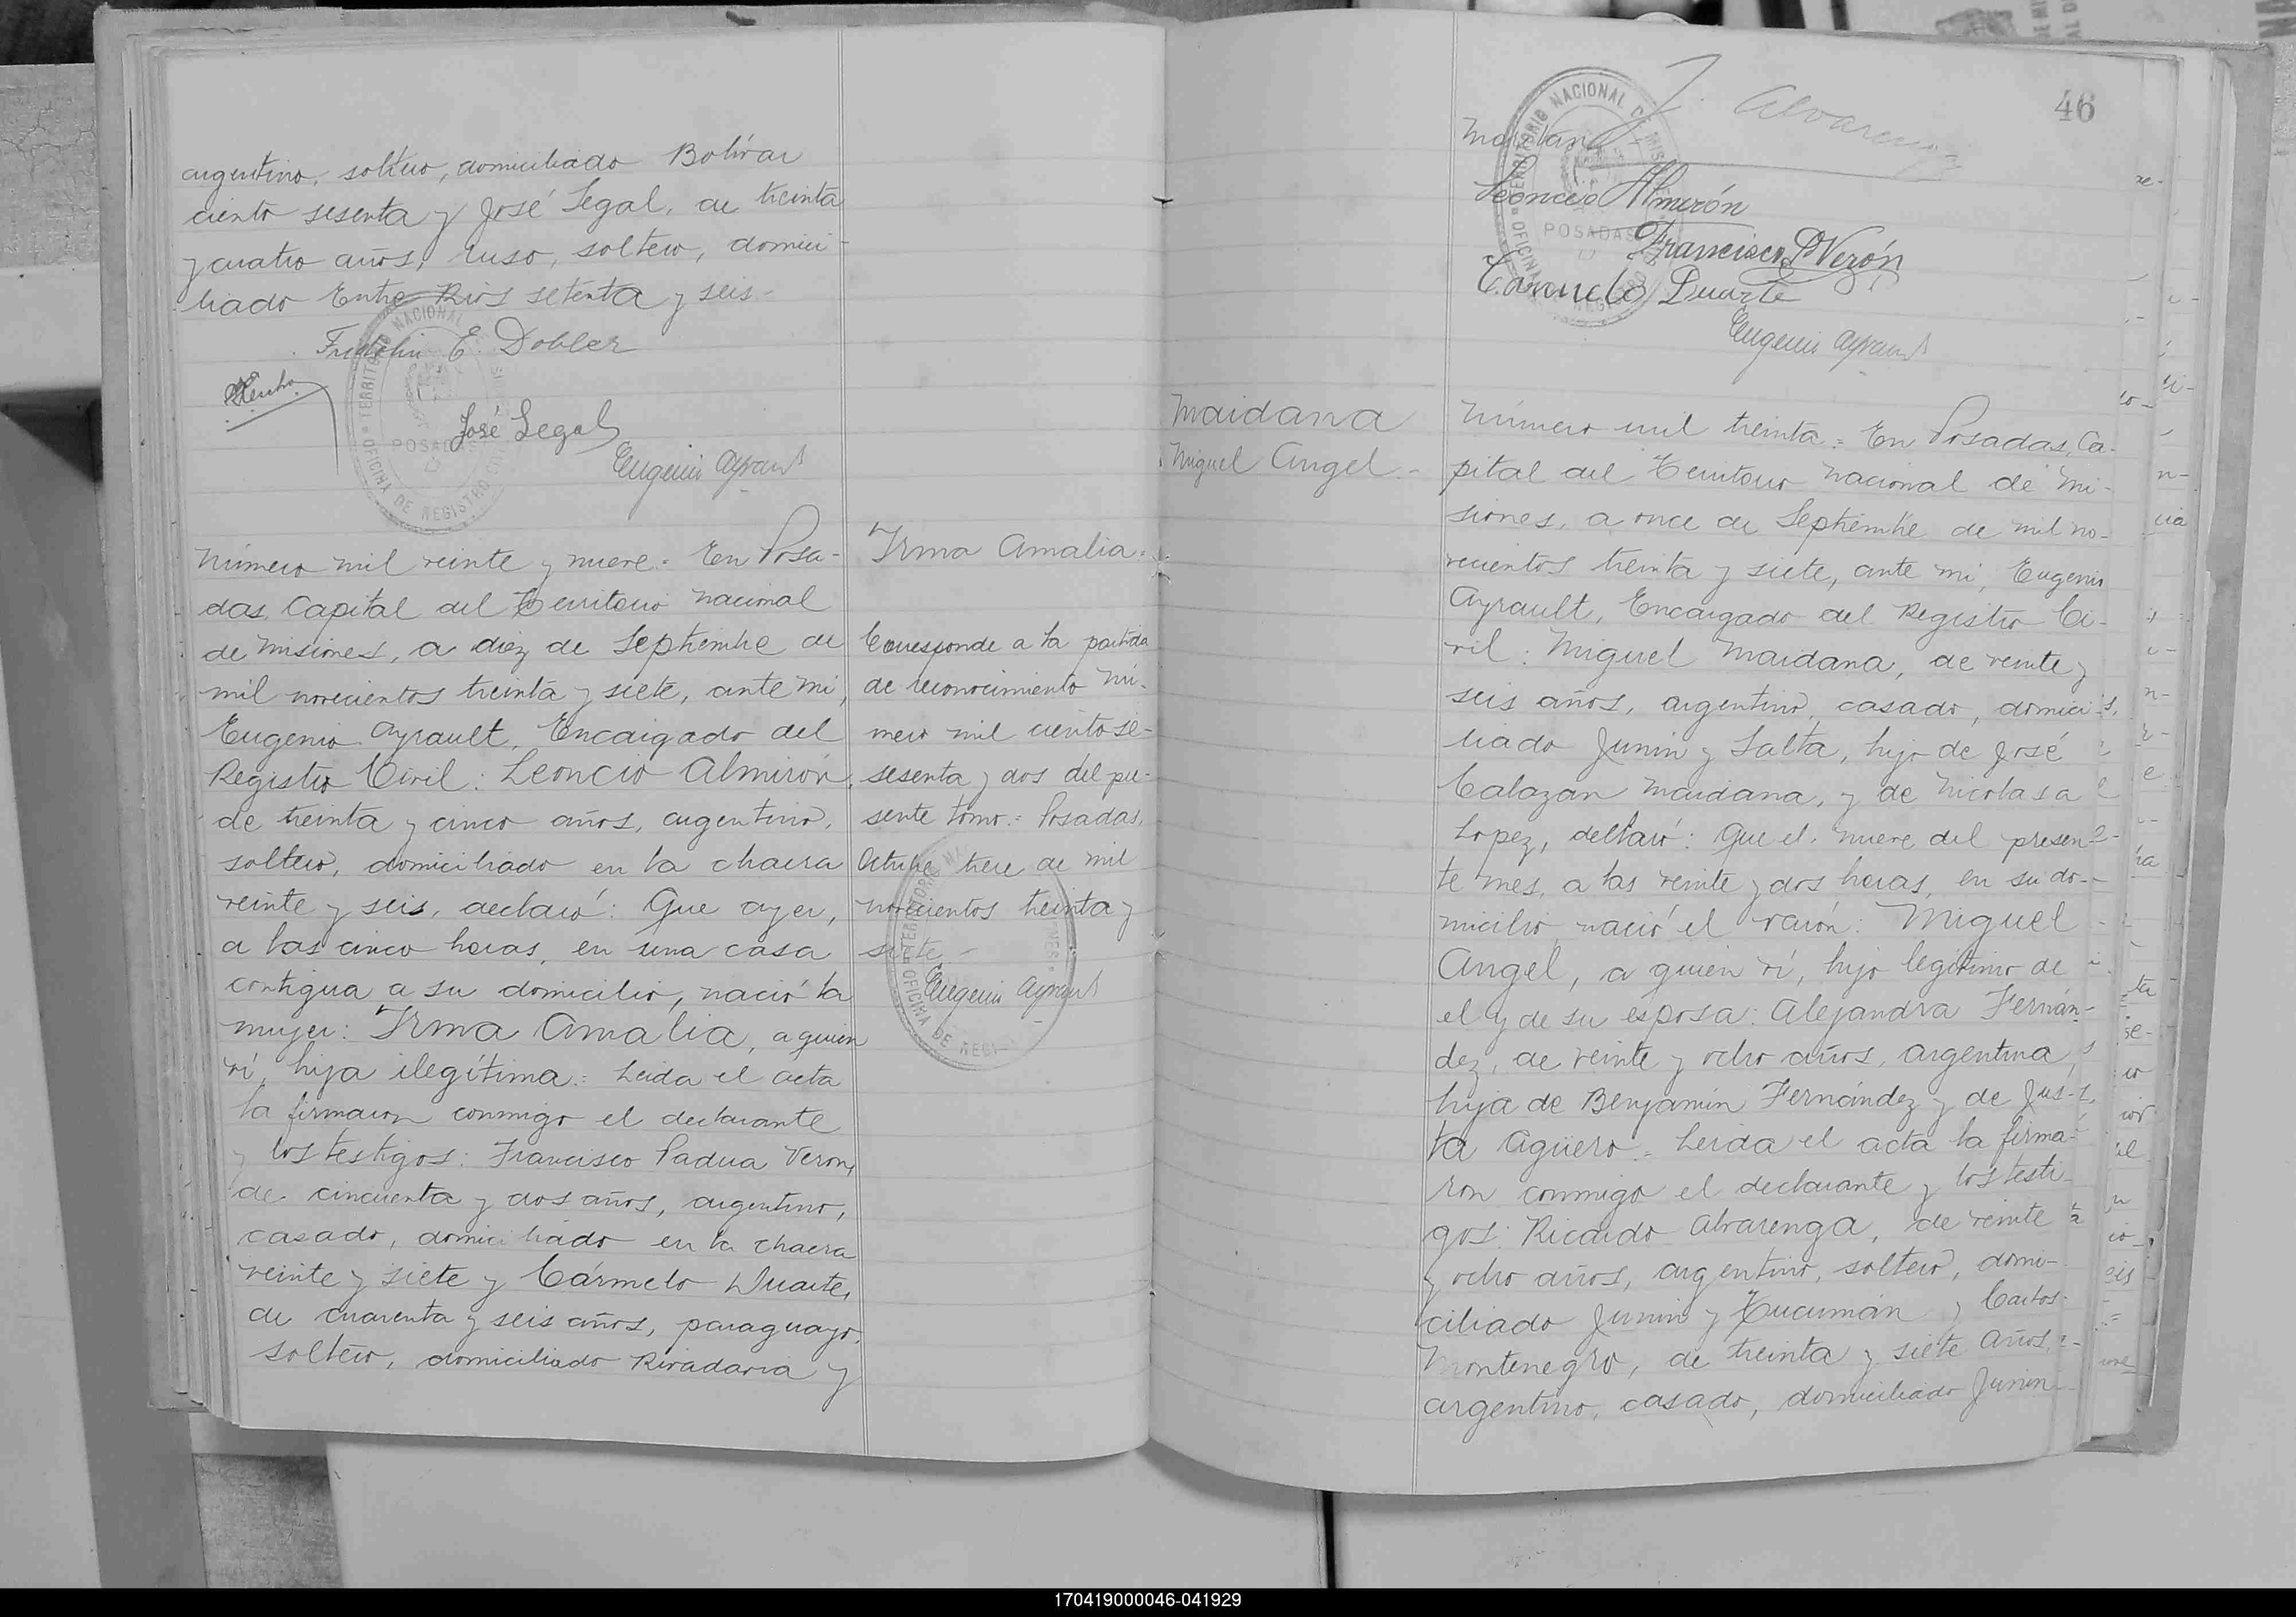 argentino, soltero, domiciliado Bolívar
ciento sesenta y José Segal, de treinta
y cuatro años, ruso, soltero, domici-
liado Entre Ríos setenta y seis-
E. Dobler
José Segal
Eugenio Ayrault
TERRITORIO NACIONAL
POSADAS
OFICINA DE REGISTRO
Número mil veinte y nueve = En Posa-
das, Capital del Territorio Nacional
de Misiones, a diez de Septiembre de
mil novecientos treinta y siete, ante mi,
Eugenio Ayrault, Encargado del
Registro Civil: Leoncio Almirón,
de treinta y cinco años, argentino,
soltero, domiciliado en la chacra
veinte y seis, declaró: Que ayer,
a las cinco horas, en una casa
contigua a su domicilio, nació la
mujer: Irma Amalia, a quien
ví, hija ilegítima = Leida el acta
la firmaron conmigo el declarante
y los testigos: Francisco Padua Veron,
de cincuenta y dos años, argentino,
casado, domiciliado en la chacra
veinte y siete y Cármelo Duarte,
de cuarenta y seis años, paraguayo,
soltero, domiciliado Rivadavia y
Irma Amalia =
Corresponde a la partida
de reconocimiento nú-
mero mil ciento se-
sesenta y dos del pre-
sente tomo = Posadas,
Octubre trece de mil
novecientos treinta y
siete -
Eugenio Ayrault
OFICINA DE REGI
46
J. Alvarenga
TERRITORIO NACIONAL DE MIS
POSADAS
Leoncio Almirón
Francisco P Verón
Carmelo Duarte
Eugenio Ayrault
Maidana
Miguel Angel -
Número mil treinta = En Posadas, Ca-
pital del Territorio Nacional de Mi-
siones, a once de Septiembre de mil no-
vecientos treinta y siete, ante mi, Eugenio
Ayrault, Encargado del Registro Ci-
vil: Miguel Maidana, de veinte y
seis años, argentino, casado, domici-
liado Junin y Salta, hijo de José
Calazan Maidana, y de Nicolasa
Lopez, declaró: Que el nueve del presen-
te mes, a las veinte y dos horas, en su do-
micilio, nació el varón: Miguel
Angel, a quien ví, hijo legítimo de
el y de su esposa: Alejandra Fernán-
dez, de veinte y ocho años, argentina,
hija de Benjamin Fernández y de Jus-
ta Agüero = Leida el acta la firma-
ron conmigo el declarante y los testi-
gos: Ricardo Alvarenga, de veinte
y ocho años, argentino, soltero, domi-
ciliado Junin y Tucumán y Carlos
Montenegro, de treinta y siete años,
argentino, casado, domiciliado Junin
170419000046-041929